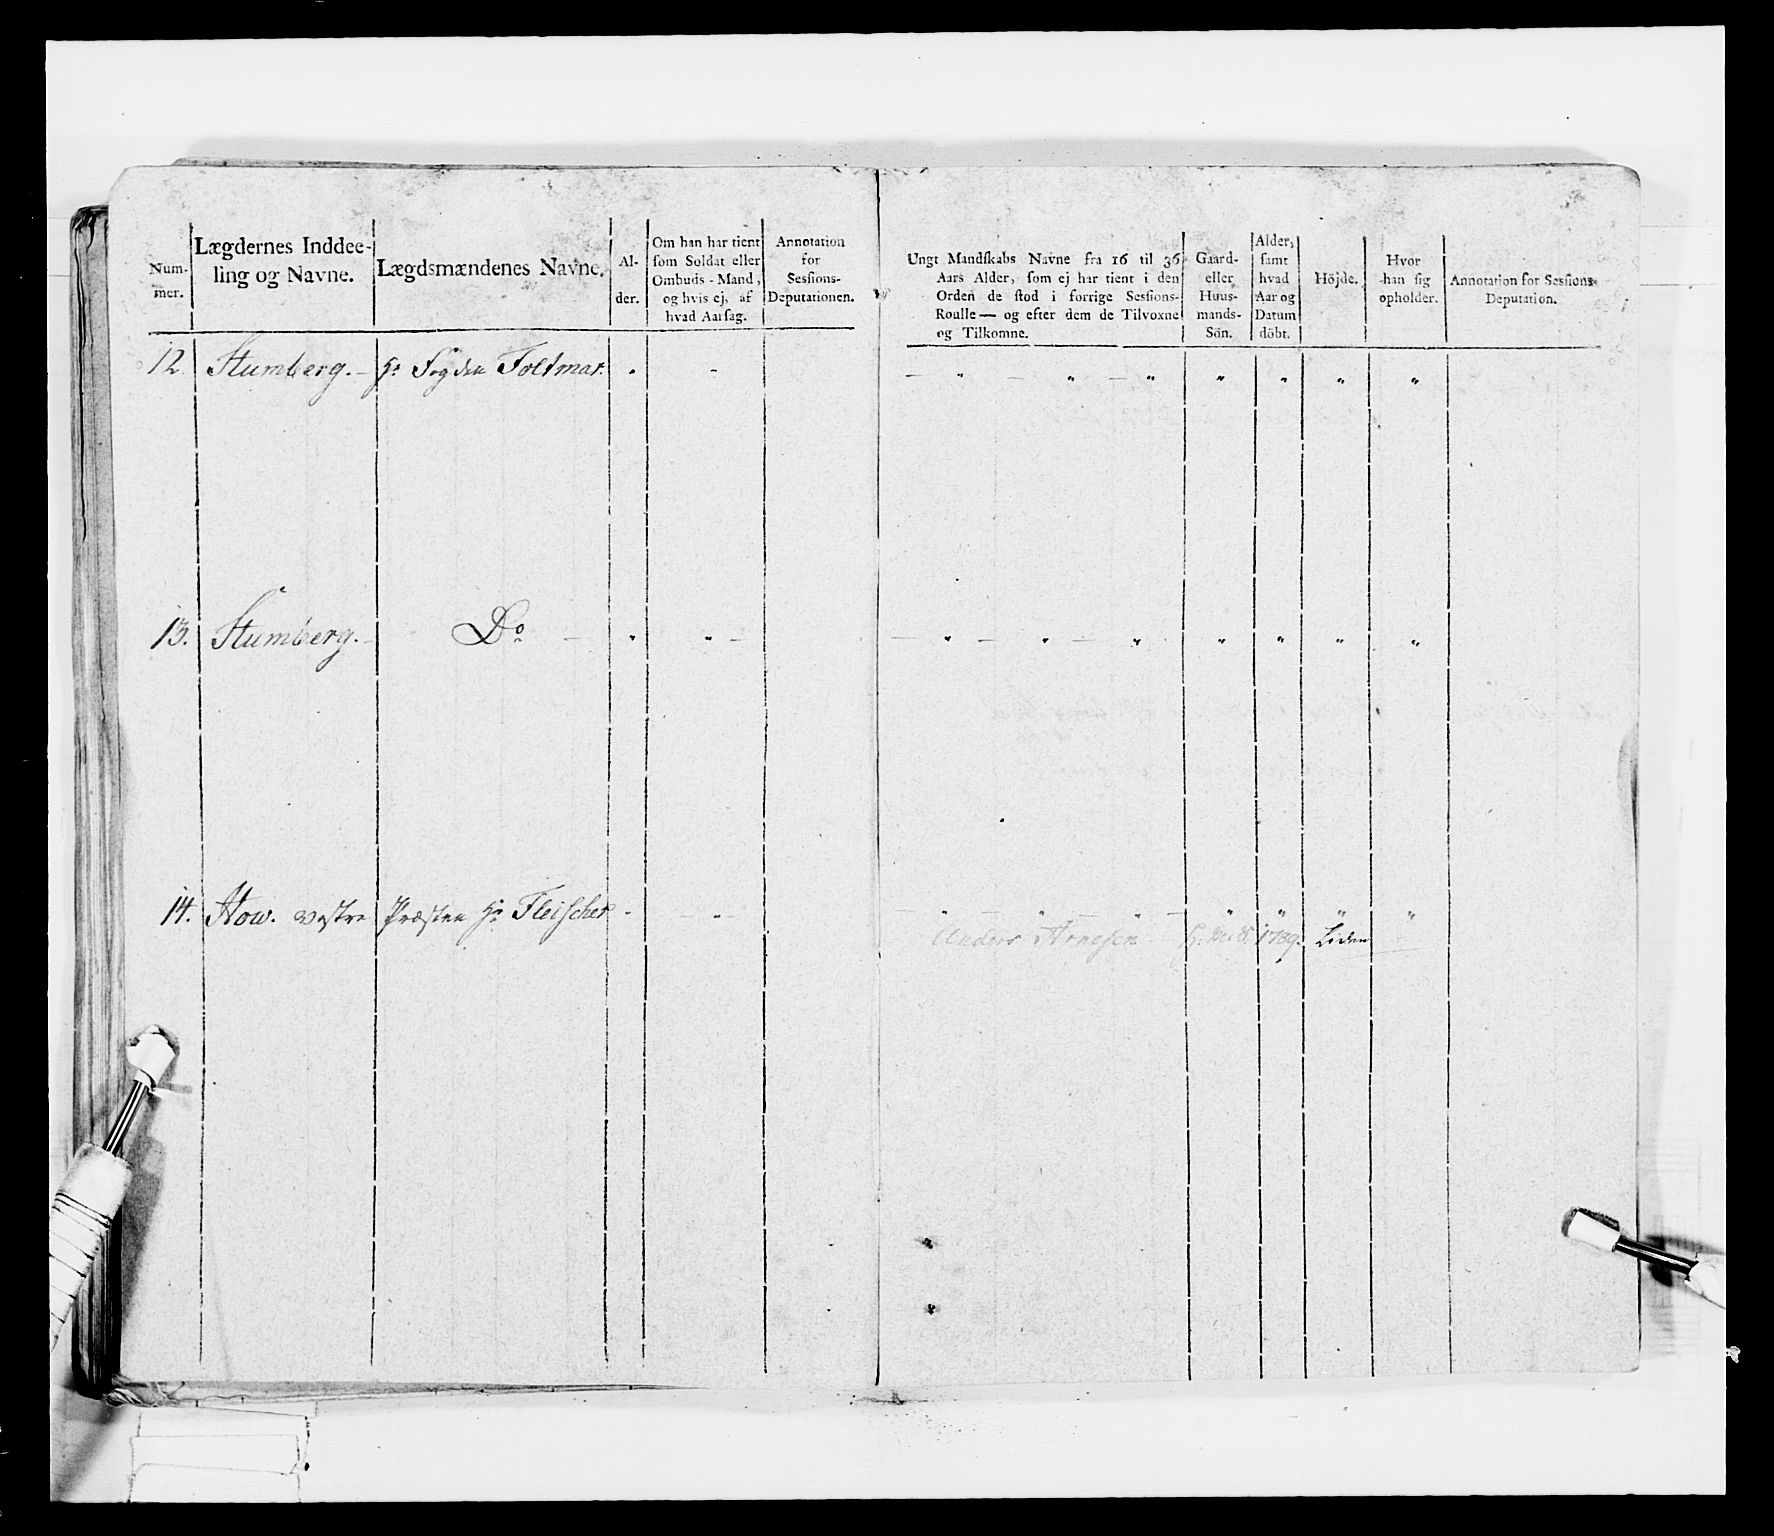 Num-
mer.
Lægdernes Inddee-
ling og Navne.
Lægdsmændenes Navne.
Al-
der.
Om han har tient
som Soldat eller
Ombuds-Mand,
og hvis ej, af
hvad Aarsag.
Annotation
for
Sessions-
Deputationen.
Ungt Mandskabs Navne fra 16 til 36
Aars Alder, som ej har tient i den
Orden de stod i forrige Sessions-
Roulle — og efter dem de Tilvoxne
og Tilkomne.
Gaard-
eller
Huus-
mands-
Sön.
Alder,
samt
hvad
Aar og
Datum
döbt.
Höjde.
Hvor
han sig
opholder.
Annotation for Sessions-
Deputation.
12. Stumberg. – Hr Fogden Foltmar. " " – " – " – " " " " "
13. Stumberg. – Do – " " – – " – " – " " " " "
14. How. vestre Præsten Hr Fleischer " " – " – " – " – " " " "
Anders Arnesen H. M. S. 1789. Liden